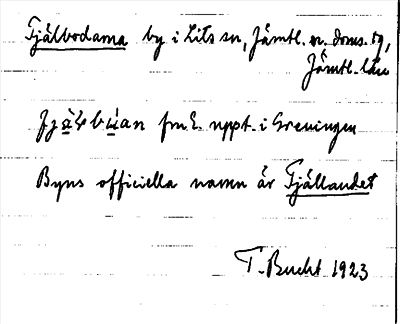 Fjälbodarna by i Lits sn, Jämtl. n. doms. sg,
Jämtl. län
fjä̀ɫbúan fm E. uppt. i Greningen
Byns officiella namn är Fjällandet
T. Bucht 1923